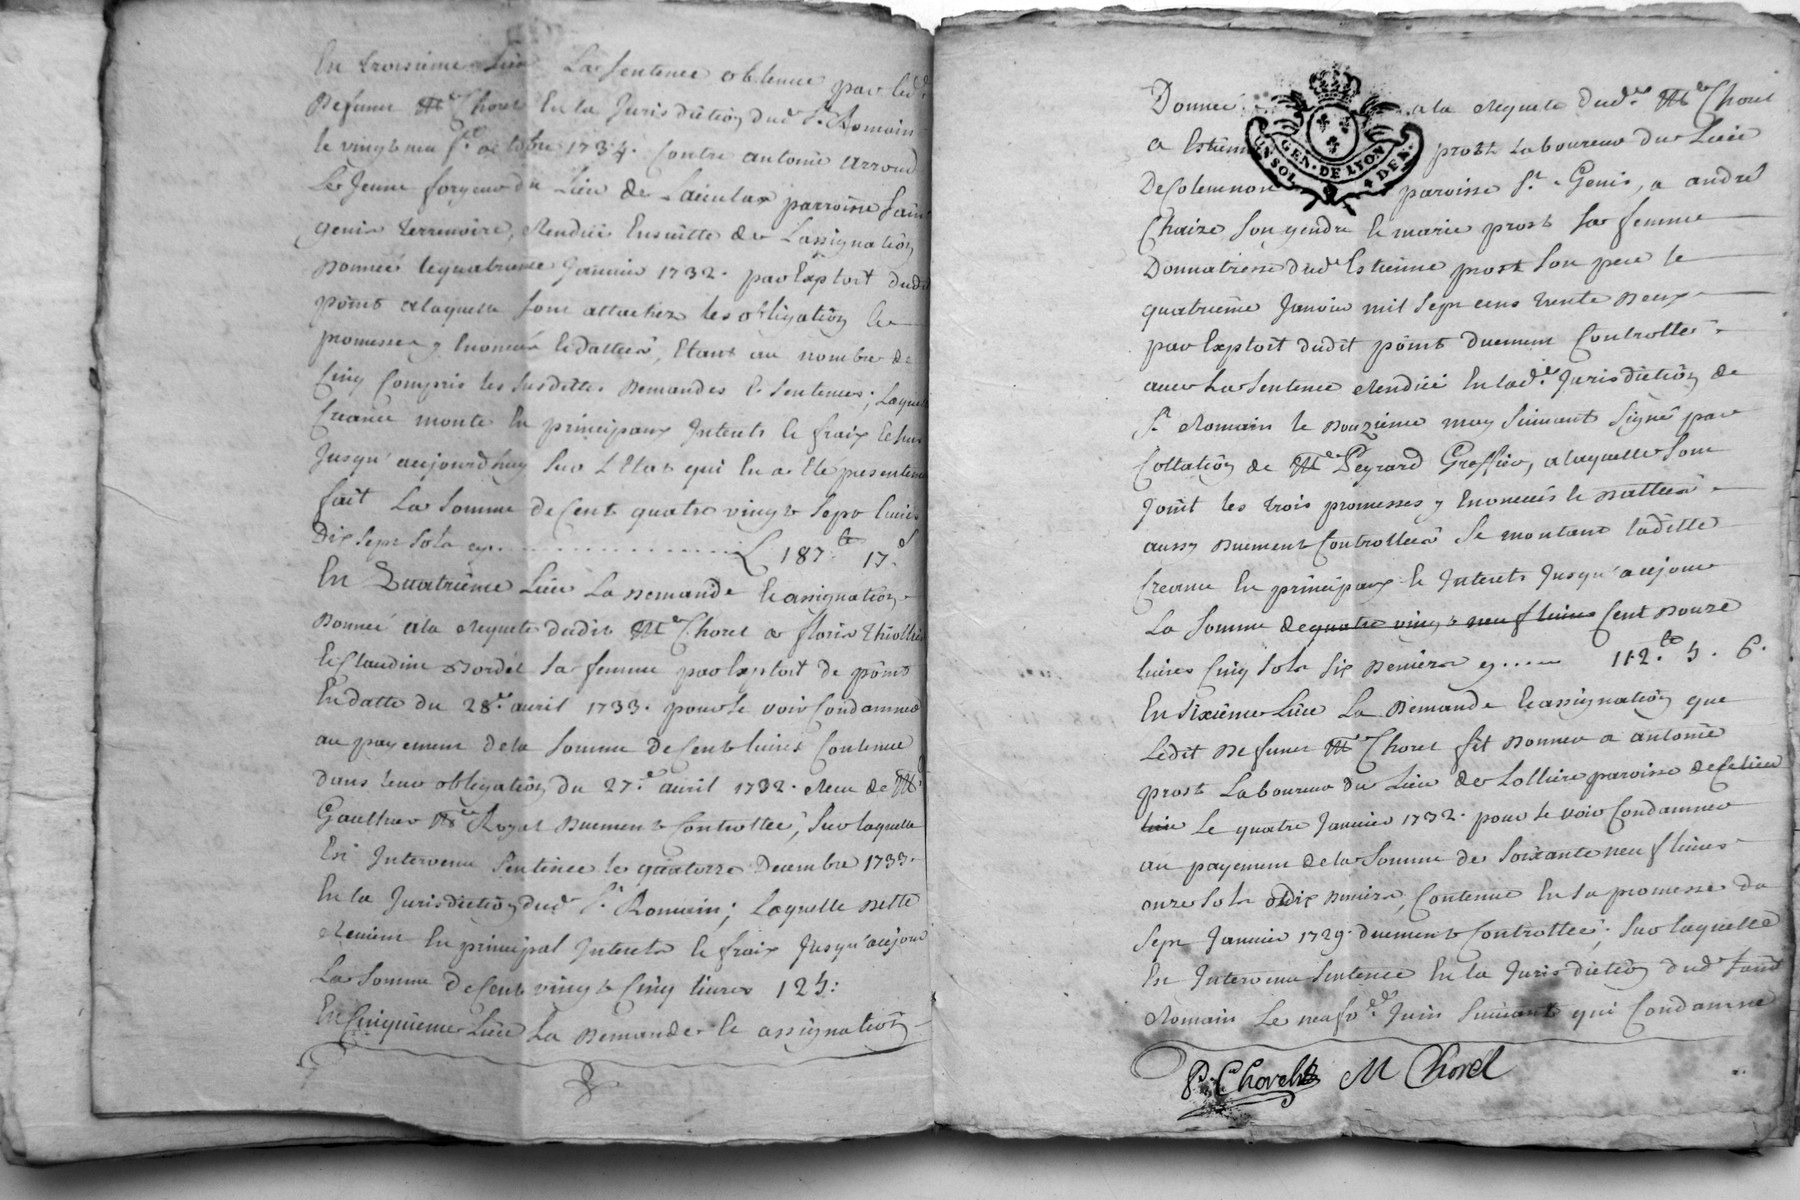 En troisieme Lieu La Sentence obtenue par led.
Defunt Me Chorel En la Jurisdiction dud. St. Romain
le vingt neuf octobre 1734. Contre antoine arroud
Le Jeune forgeur du Lieu de parroisse Saint
genis terrenoire, Rendüe Ensuitte de Lassignation
Donneé le quatrieme Janvier 1732. par Exploit dudit
point a laquelle sont attachez les obligation &
promesses y Enoncés & dattées, Etant au nombre de
Cinq Compris les Susdittes Demandes & Sentences; Laquelle
Creance monte En principaux Interets & fraix
Jusqu'aujourdhuy Sur L'Etat qui En a Eté presentement
fait La Somme de Cent quatre vingt Sept livres
Dix Sept Sols cy. L 187.lt 17.s
En Quatrieme Lieu La Demande & assignation
Donneé a la Requete dudit Me Chorel a floris Thiollier
& Claudine Bordel Sa femme par Exploit de point
En datte du 28e. avril 1733. pour Se voir Condamner
au payement de la Somme de Cent livres Contenue
dans leur obligation du 27.e avril 1732. Recue de Me
Gaultier Nre Royal Duement Controllée, Sur laquelle
Est Intervenu Sentence le quatorze Decembre 1733.
En la Jurisdiction dud. St. Romain; Laquelle Dette
Revient En principal Interets & fraix Jusqu'aujour
La Somme de Cent vingt Cinq livres 125:
En Cinquieme Lieu La Demande & assignation
Donneé a la Requete dud. Me Chorel
a Estienne prost Laboureur du Lieu
De Colemnon paroisse St. Genis, a andré
Chaize Son gendre & marie prost Sa femme
Donnatresse dud. Estienne prost Son pere le
quatrieme Janvier mil Sept cens trente Deux
par Exploit dudit point Duement Controllé
avec La Sentence Rendüe En lad. Jurisdiction de
St. Romain le Douzieme may Suivant Signé par
Collation de Me Peyrard Greffier, a laquelle Sont
Joint les trois promesses y Enoncés & Dattées
aussy Duement Controllées Se montant laditte
Creance En principaux & Interets Jusqu'aujour
La Somme de quatre vingt neuf livres Cent Douze
livres Cinq Sols Six Deniers cy.... 112.lt 5. 6.
En Sixieme Lieu La Demande & assignation que
Ledit Defunt Me Chorel fit Donner a antoine
prost Laboureur du Lieu de Lolliere paroisse de Ce lieu
lieu Le quatre Janvier 1732. pour Se voir Condamner
au payement de la Somme de Soixante neuf livres
onze Sols dix Deniers, Contenue En Sa promesse du
Sept Janvier 1729. duement Controllée; Sur laquelle
Est Intervenu Sentence En la Jurisdiction dud. Saint
Romain Le neufv.e Juin Suivant qui Condamne
GEN. DE LYON
P. Chorel M Chorel